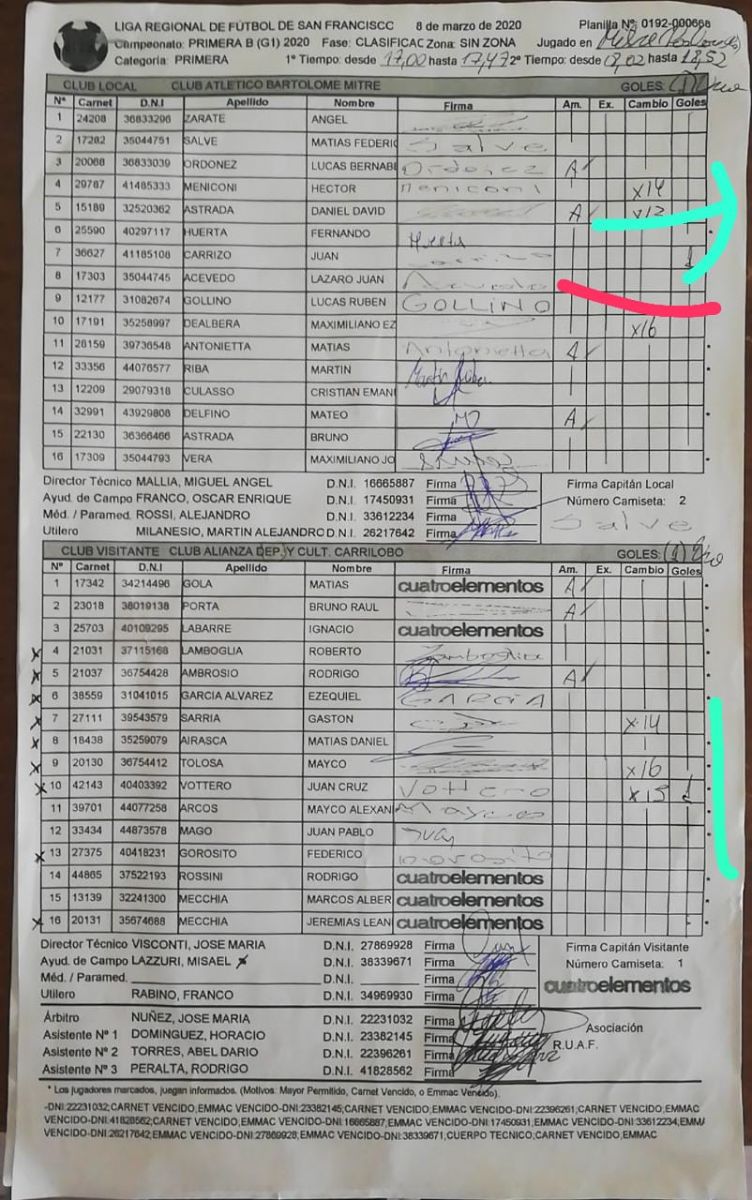 LIGA REGIONAL DE FÚTBOL DE SAN FRANCISCC 8 de marzo de 2020 Planilla Nº: 0192-000668
Campeonato: PRIMERA B (G1) 2020 Fase: CLASIFICAC Zona: SIN ZONA Jugado en Mitre
Categoria: PRIMERA 1º Tiempo: desde 17,00 hasta 17,47 2º Tiempo: desde 18,02 hasta 18,52
CLUB LOCAL CLUB ATLETICO BARTOLOME MITRE GOLES: (1)
Nº Carnet D.N.I Apellido Nombre Firma Am. Ex. Cambio Goles
1 24208 36833296 ZARATE ANGEL
2 17282 35044751 SALVE MATIAS FEDERIC Salve
3 20088 36833039 ORDONEZ LUCAS BERNABE Ordoñez A
4 29787 41485333 MENICONI HECTOR Meniconi x14
5 15189 32520362 ASTRADA DANIEL DAVID A
6 25590 40297117 HUERTA FERNANDO Huerta
7 36627 41185108 CARRIZO JUAN 1
8 17303 35044745 ACEVEDO LAZARO JUAN Acevedo
9 12177 31082674 GOLLINO LUCAS RUBEN GOLLINO
10 17191 35258997 DEALBERA MAXIMILIANO EZ x16
11 28159 39736548 ANTONIETTA MATIAS Antonietta A
12 33356 44076577 RIBA MARTIN Martin Riba
13 12209 29079318 CULASSO CRISTIAN EMANI
14 32991 43929808 DELFINO MATEO A
15 22130 36366466 ASTRADA BRUNO
16 17309 35044793 VERA MAXIMILIANO JO
Director Técnico MALLIA, MIGUEL ANGEL D.N.I. 16665887 Firma Firma Capitán Local
Ayud. de Campo FRANCO, OSCAR ENRIQUE D.N.I. 17450931 Firma Número Camiseta: 2
Méd. / Paramed. ROSSI, ALEJANDRO D.N.I. 33612234 Firma Salve
Utilero MILANESIO, MARTIN ALEJANDRO D.N.I. 26217642 Firma
CLUB VISITANTE CLUB ALIANZA DEP. Y CULT. CARRILOBO GOLES: (1) Uno
Nº Carnet D.N.I Apellido Nombre Firma Am. Ex. Cambio Goles
1 17342 34214496 GOLA MATIAS cuatroelementos A
2 23018 38019138 PORTA BRUNO RAUL A
3 25703 40109295 LABARRE IGNACIO cuatroelementos
x 4 21031 37115168 LAMBOGLIA ROBERTO Lamboglia
x 5 21037 36754428 AMBROSIO RODRIGO A
x 6 38559 31041015 GARCIA ALVAREZ EZEQUIEL GARCIA
x 7 27111 39543579 SARRIA GASTON x14
x 8 18438 35259079 AIRASCA MATIAS DANIEL
x 9 20130 36754412 TOLOSA MAYCO x16
x 10 42143 40403392 VOTTERO JUAN CRUZ Vottero x15 1
11 39701 44077258 ARCOS MAYCO ALEXAN Mayco
12 33434 44873578 MAGO JUAN PABLO Juan
x 13 27375 40418231 GOROSITO FEDERICO Gorosito
14 44865 37522193 ROSSINI RODRIGO cuatroelementos
15 13139 32241300 MECCHIA MARCOS ALBER cuatroelementos
x 16 20131 35674688 MECCHIA JEREMIAS LEAN cuatroelementos
Director Técnico VISCONTI, JOSE MARIA D.N.I. 27869928 Firma Firma Capitán Visitante
Ayud. de Campo LAZZURI, MISAEL x D.N.I. 38339671 Firma Número Camiseta: 1
Méd. / Paramed. D.N.I. Firma cuatroelementos
Utilero RABINO, FRANCO D.N.I. 34969930 Firma
Árbitro NUÑEZ, JOSE MARIA D.N.I. 22231032 Firma Asociación
Asistente Nº 1 DOMINGUEZ, HORACIO D.N.I. 23382145 Firma R.U.A.F.
Asistente Nº 2 TORRES, ABEL DARIO D.N.I. 22396261 Firma
Asistente Nº 3 PERALTA, RODRIGO D.N.I. 41828562 Firma
* Los jugadores marcados, juegan informados. (Motivos: Mayor Permitido, Carnet Vencido, o Emmac Vencido).
-DNI:22231032;CARNET VENCIDO,EMMAC VENCIDO-DNI:23382145;CARNET VENCIDO,EMMAC VENCIDO-DNI:22396261;CARNET VENCIDO,EMMAC
VENCIDO-DNI:41828562;CARNET VENCIDO,EMMAC VENCIDO-DNI:16665887;EMMAC VENCIDO-DNI:17450931;EMMAC VENCIDO-DNI:33612234;EMMA
VENCIDO-DNI:26217642;EMMAC VENCIDO-DNI:27869928;EMMAC VENCIDO-DNI:38339671;CUERPO TECNICO;CARNET VENCIDO,EMMAC